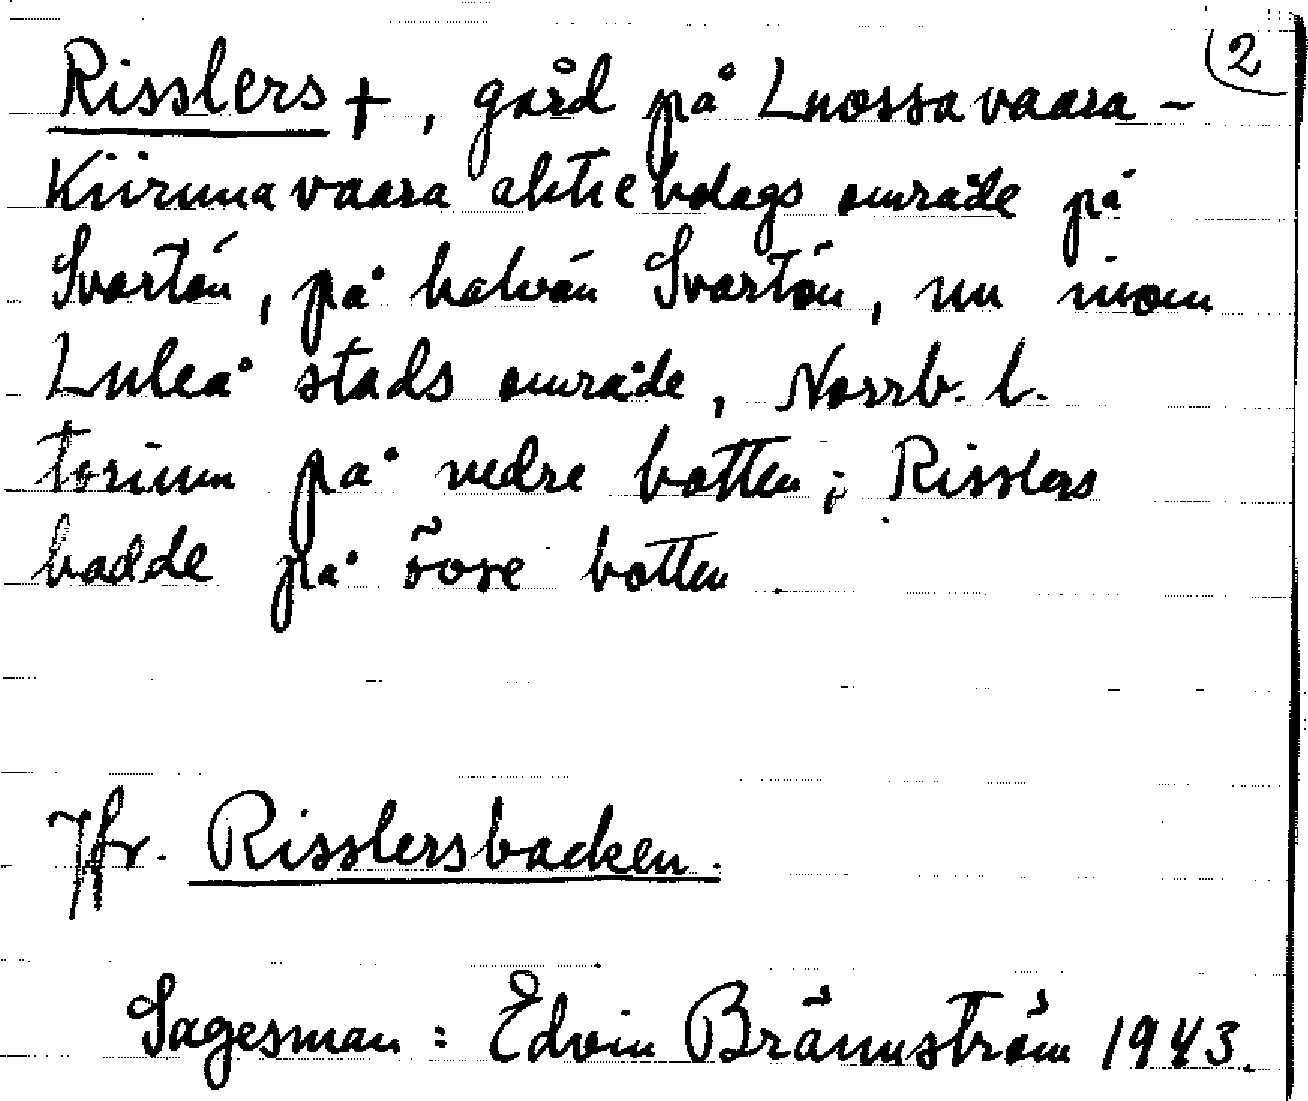 2
Risslers †, gård på Luossavaara-
Kiirunavaara aktiebolags område på
Svartön, på halvön Svartön, nu inom
Luleå stads område, Norrb. l.
torium på nedre botten; Risslers
hadde på övre botten.
Jfr. Risslersbacken.
Sagesman: Edvin Brännström 1943.